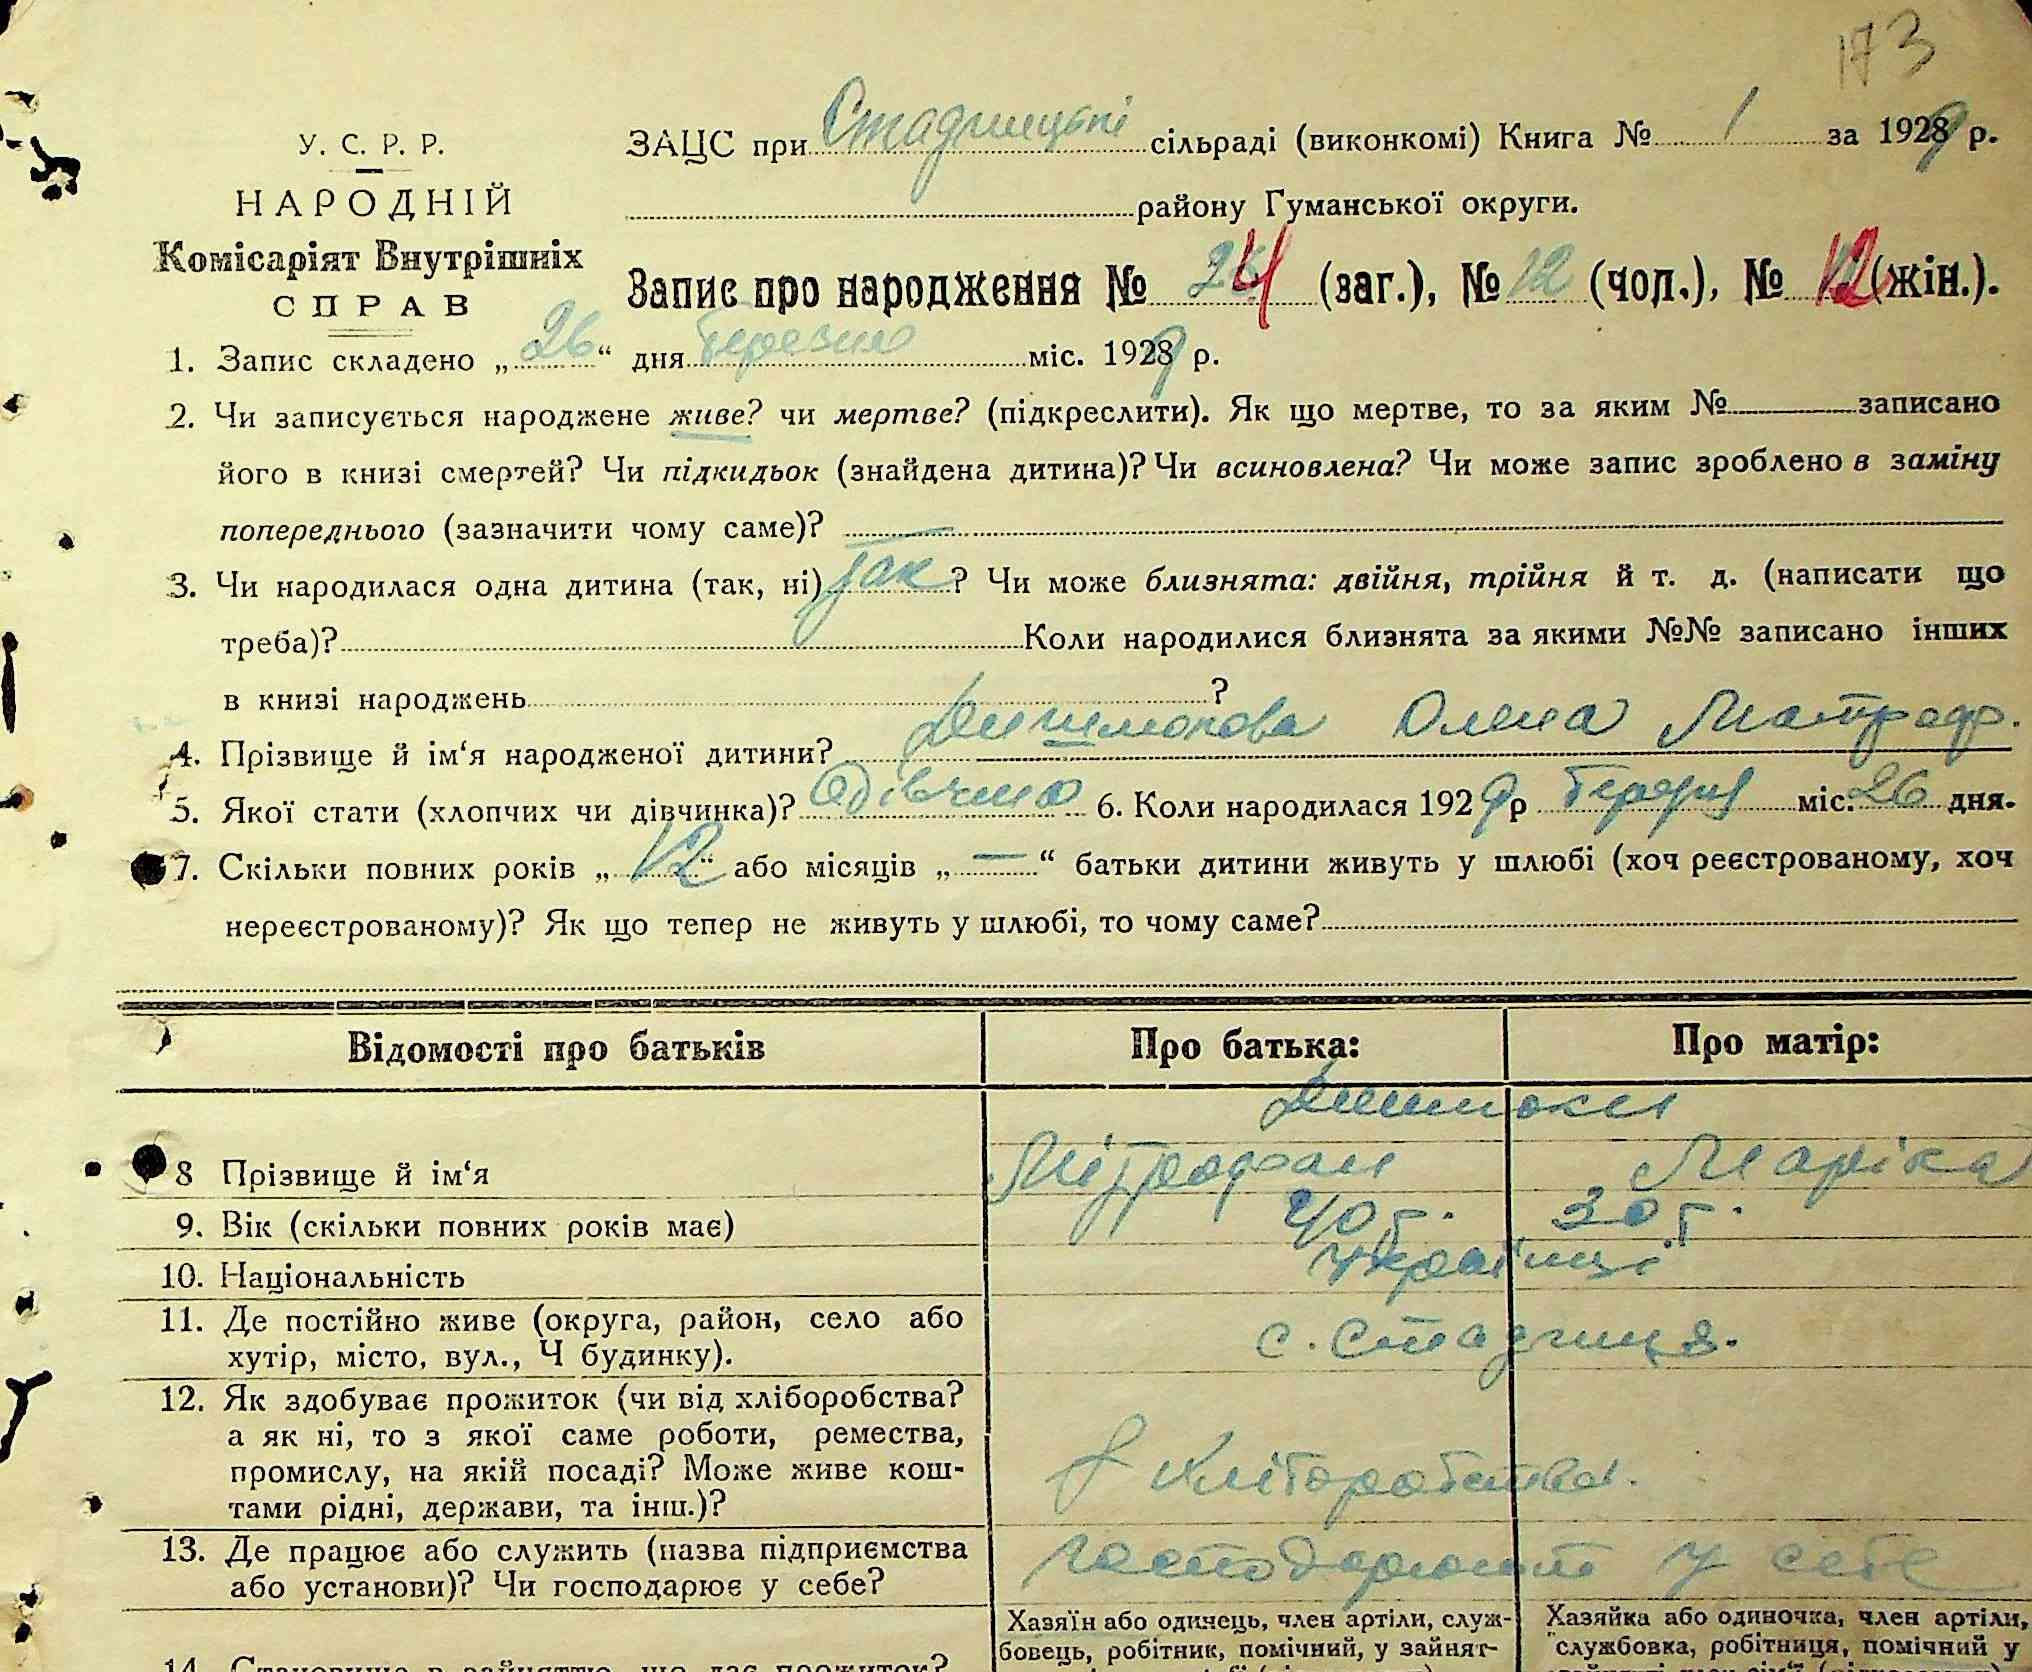 173
У. С. Р. Р.
НАРОДНІЙ
Комісаріят Внутрішніх
СПРАВ
ЗАЦС при Стадницькі сільраді (виконкомі) Книга № 1 за 1929 р.
району Гуманської округи.
Запис про народження № 24 (заг.), № 12 (чол.), № 12 (жін.).
1. Запис складено „26“ дня березня міс. 1929 р.
2. Чи записується народжене живе? чи мертве? (підкреслити). Як що мертве, то за яким № записано
його в книзі смертей? Чи підкидьок (знайдена дитина)? Чи всиновлена? Чи може запис зроблено в заміну
попереднього (зазначити чому саме)?
3. Чи народилася одна дитина (так, ні) так? Чи може близнята: двійня, трійня й т. д. (написати що
треба)? Коли народилися близнята за якими №№ записано інших
в книзі народжень ?
4. Прізвище й ім‘я народженої дитини? Олена Митроф.
5. Якої стати (хлопчих чи дівчинка)? дівчина 6. Коли народилася 1929 р березня міс. 26 дня.
7. Скільки повних років „12“ або місяців „—“ батьки дитини живуть у шлюбі (хоч реєстрованому, хоч
нереєстрованому)? Як що тепер не живуть у шлюбі, то чому саме?
Відомості про батьків Про батька: Про матір:
8 Прізвище й ім‘я Мітрофан Маріка
9. Вік (скільки повних років має) 40 г. 30 г.
10. Національність Українці
11. Де постійно живе (округа, район, село або
хутір, місто, вул., Ч будинку). с. Стадниця.
12. Як здобуває прожиток (чи від хліборобства?
а як ні, то з якої саме роботи, ремества,
промислу, на якій посаді? Може живе кош-
тами рідні, держави, та інш.)? З хліборобства.
13. Де працює або служить (назва підприємства
або установи)? Чи господарює у себе? господарюют у себе
Хазяїн або одинець, член артіли, служ-
бовець, робітник, помічний, у зайнят-
Хазяйка або одиночка, член артіли,
службовка, робітниця, помічний у
14. Становище в зайняттю, що дає прожиток?